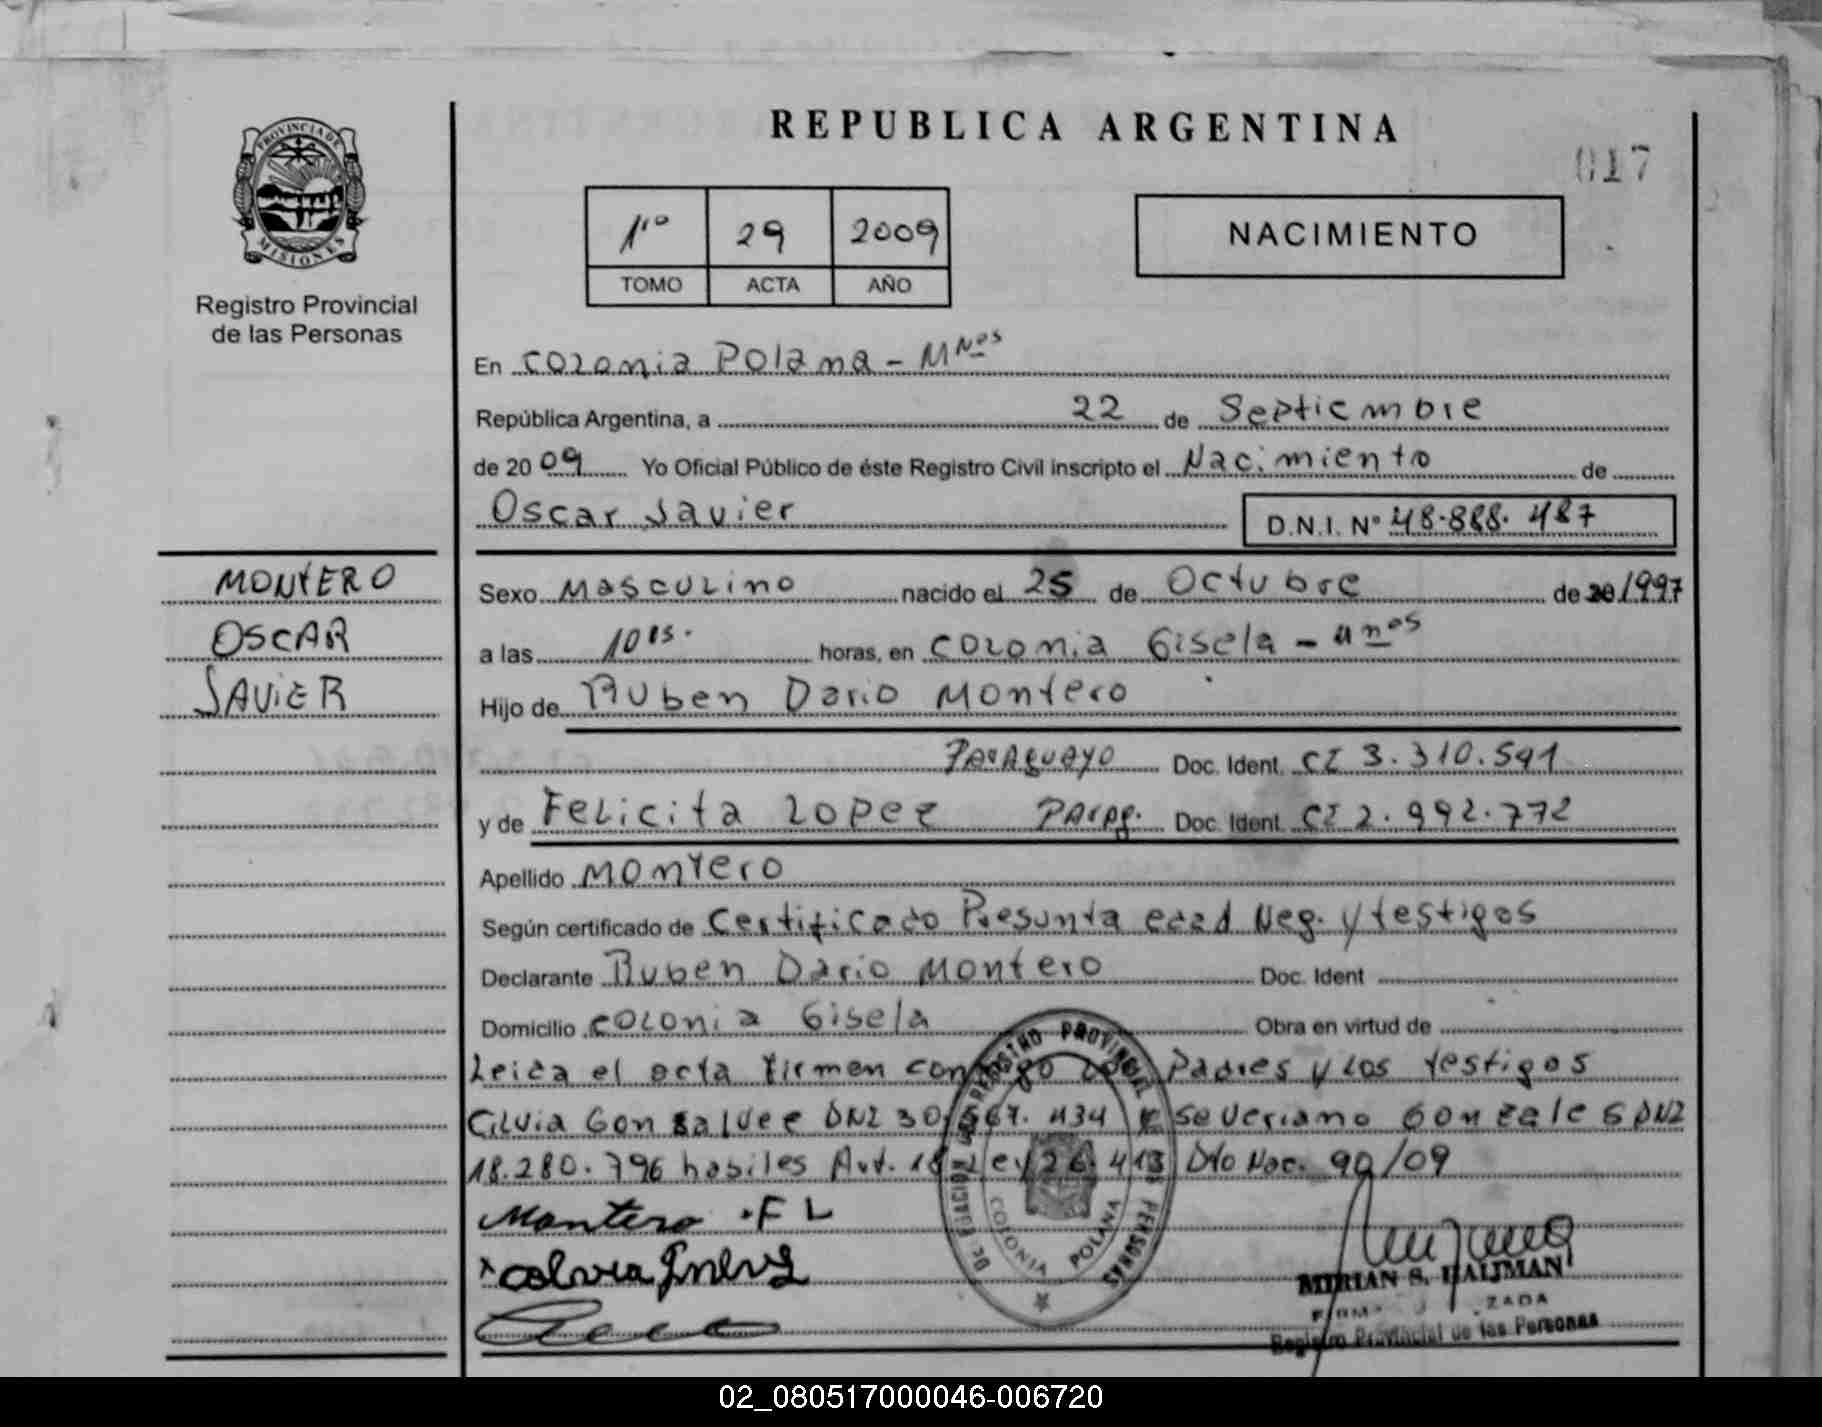 REPUBLICA ARGENTINA
017
PROVINCIA DE
MISIONES
Registro Provincial
de las Personas
1º 29 2009
TOMO ACTA AÑO
NACIMIENTO
En Colonia Polana - Mnes
República Argentina, a 22 de Septiembre
de 2009 Yo Oficial Público de éste Registro Civil inscripto el Nacimiento de
Oscar Javier D.N.I. Nº 48.888.487
MONTERO
OSCAR
JAVIER
Sexo Masculino nacido el 25 de Octubre de 20 1997
a las 10 hs. horas, en Colonia Gisela - Mnes
Hijo de Ruben Dario Montero
PARAGUAYO Doc. Ident. CI 3.310.591
y de Felicita Lopez Parag. Doc. Ident. CI 2.992.772
Apellido Montero
Según certificado de Certificado Presunta edad Neg. y testigos
Declarante Ruben Dario Montero Doc. Ident
Domicilio Colonia Gisela Obra en virtud de
Leida el acta firman conmigo los Padres y los testigos
Cilvia Gonsalvez DNI 30.567.434 y Severiano Gonzales DNI
18.280.796 habiles Art. 18 Ley 26.413 Dto Nac. 90/09
Montero .F L
REGISTRO PROVINCIAL DE LAS PERSONAS
COLONIA POLANA
MIRIAN S. HALJMAN
Registro Provincial de las Personas
02_080517000046-006720